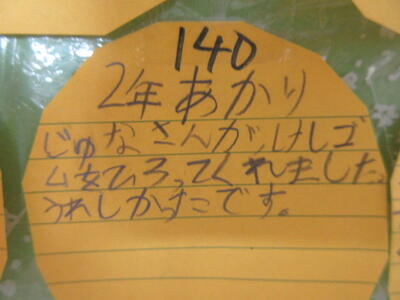 140
2年あかり
じゅなさんがけしゴ
ムをひろってくれました。
うれしかったです。